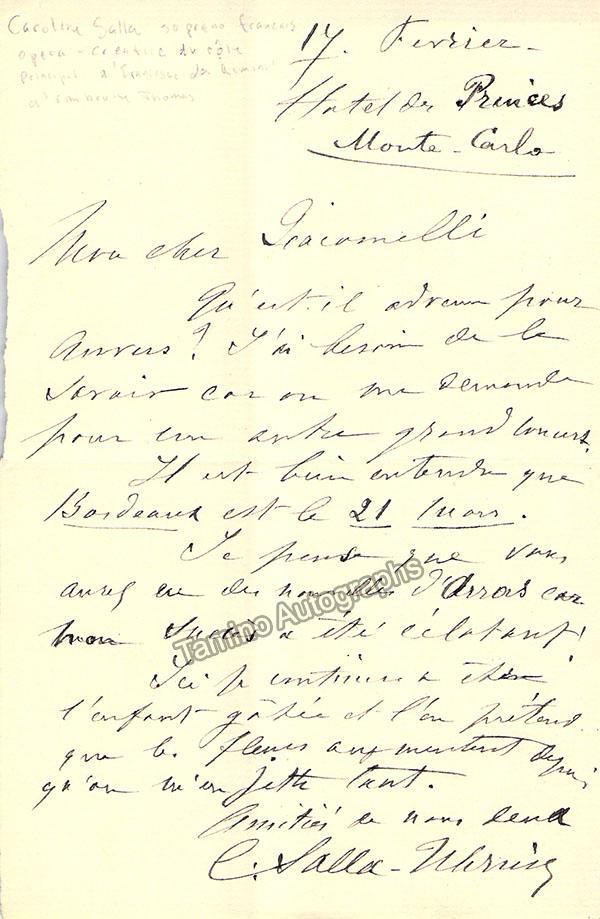 Caroline Salla soprano français
opera - créatrice du rôle
principal d'Françoise de Rimini
d'Ambroise Thomas
17. Fevrier -
Hotel des Princes
Monte-Carlo
Mon cher Giacomelli
Qu'est-il advenu pour
Anvers? J'ai besoin de le
savoir car on me demande
pour un autre grand concert.
Il est bien entendu que
Bordeaux est le 21 Mars.
Je pense que vous
aurez eu des nouvelles d'Arras car
mon succès a été éclatant!
Ici je continue a être
l'enfant gâtée et l'on prétend
que les fleurs augmentent depuis
qu'on m'en jette tant.
Amitiés de nous deux
C. Salla-
Tamino Autographs